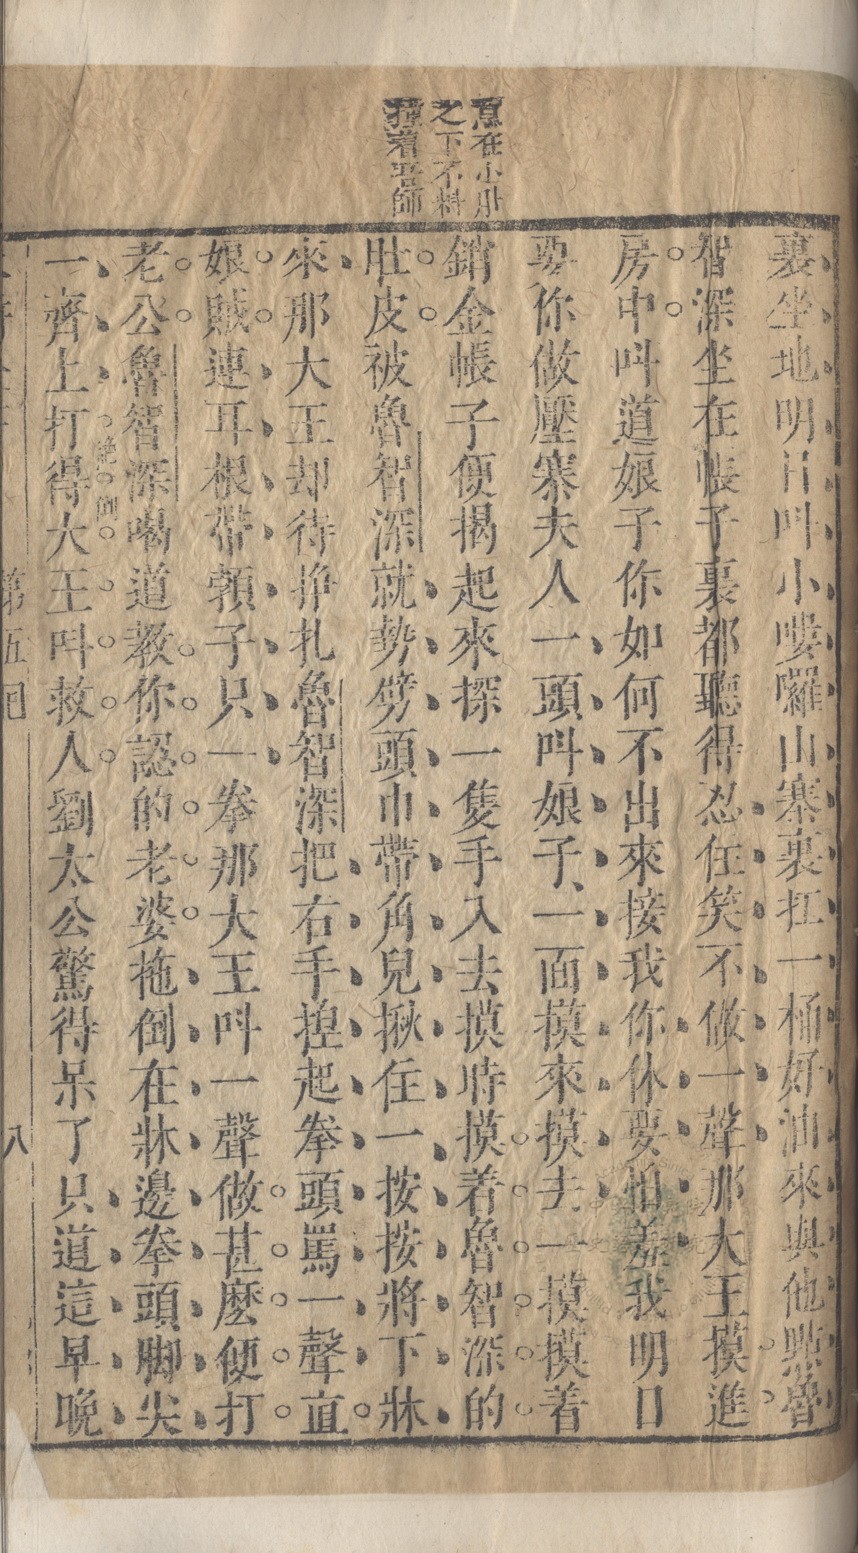 意在小肚
之下不料
撞着吾師
裏坐地明日呌小嘍囉山寨裏扛一桶好油來與他點魯
智深坐在帳子裏都聽得忍住笑不做一聲那大王摸進
房中呌道娘子你如何不出來接我你休要怕羞我明日
要你做壓寨夫人一頭呌娘子一面摸來摸去一摸摸着
銷金帳子便揭起來探一隻手入去摸時摸着魯智深的
肚皮被魯智深就勢劈頭巾帶角兒揪住一按按將下牀
來那大王却待挣扎魯智深把右手揑起拳頭罵一聲直
娘賊連耳根帶頸子只一拳那大王呌一聲做甚麽便打
老公魯智深喝道教你認的老婆拖倒在牀邊拳頭脚尖
絶倒
一齊上打得大王呌救人劉太公驚得呆了只道這早晚
第五囘
八